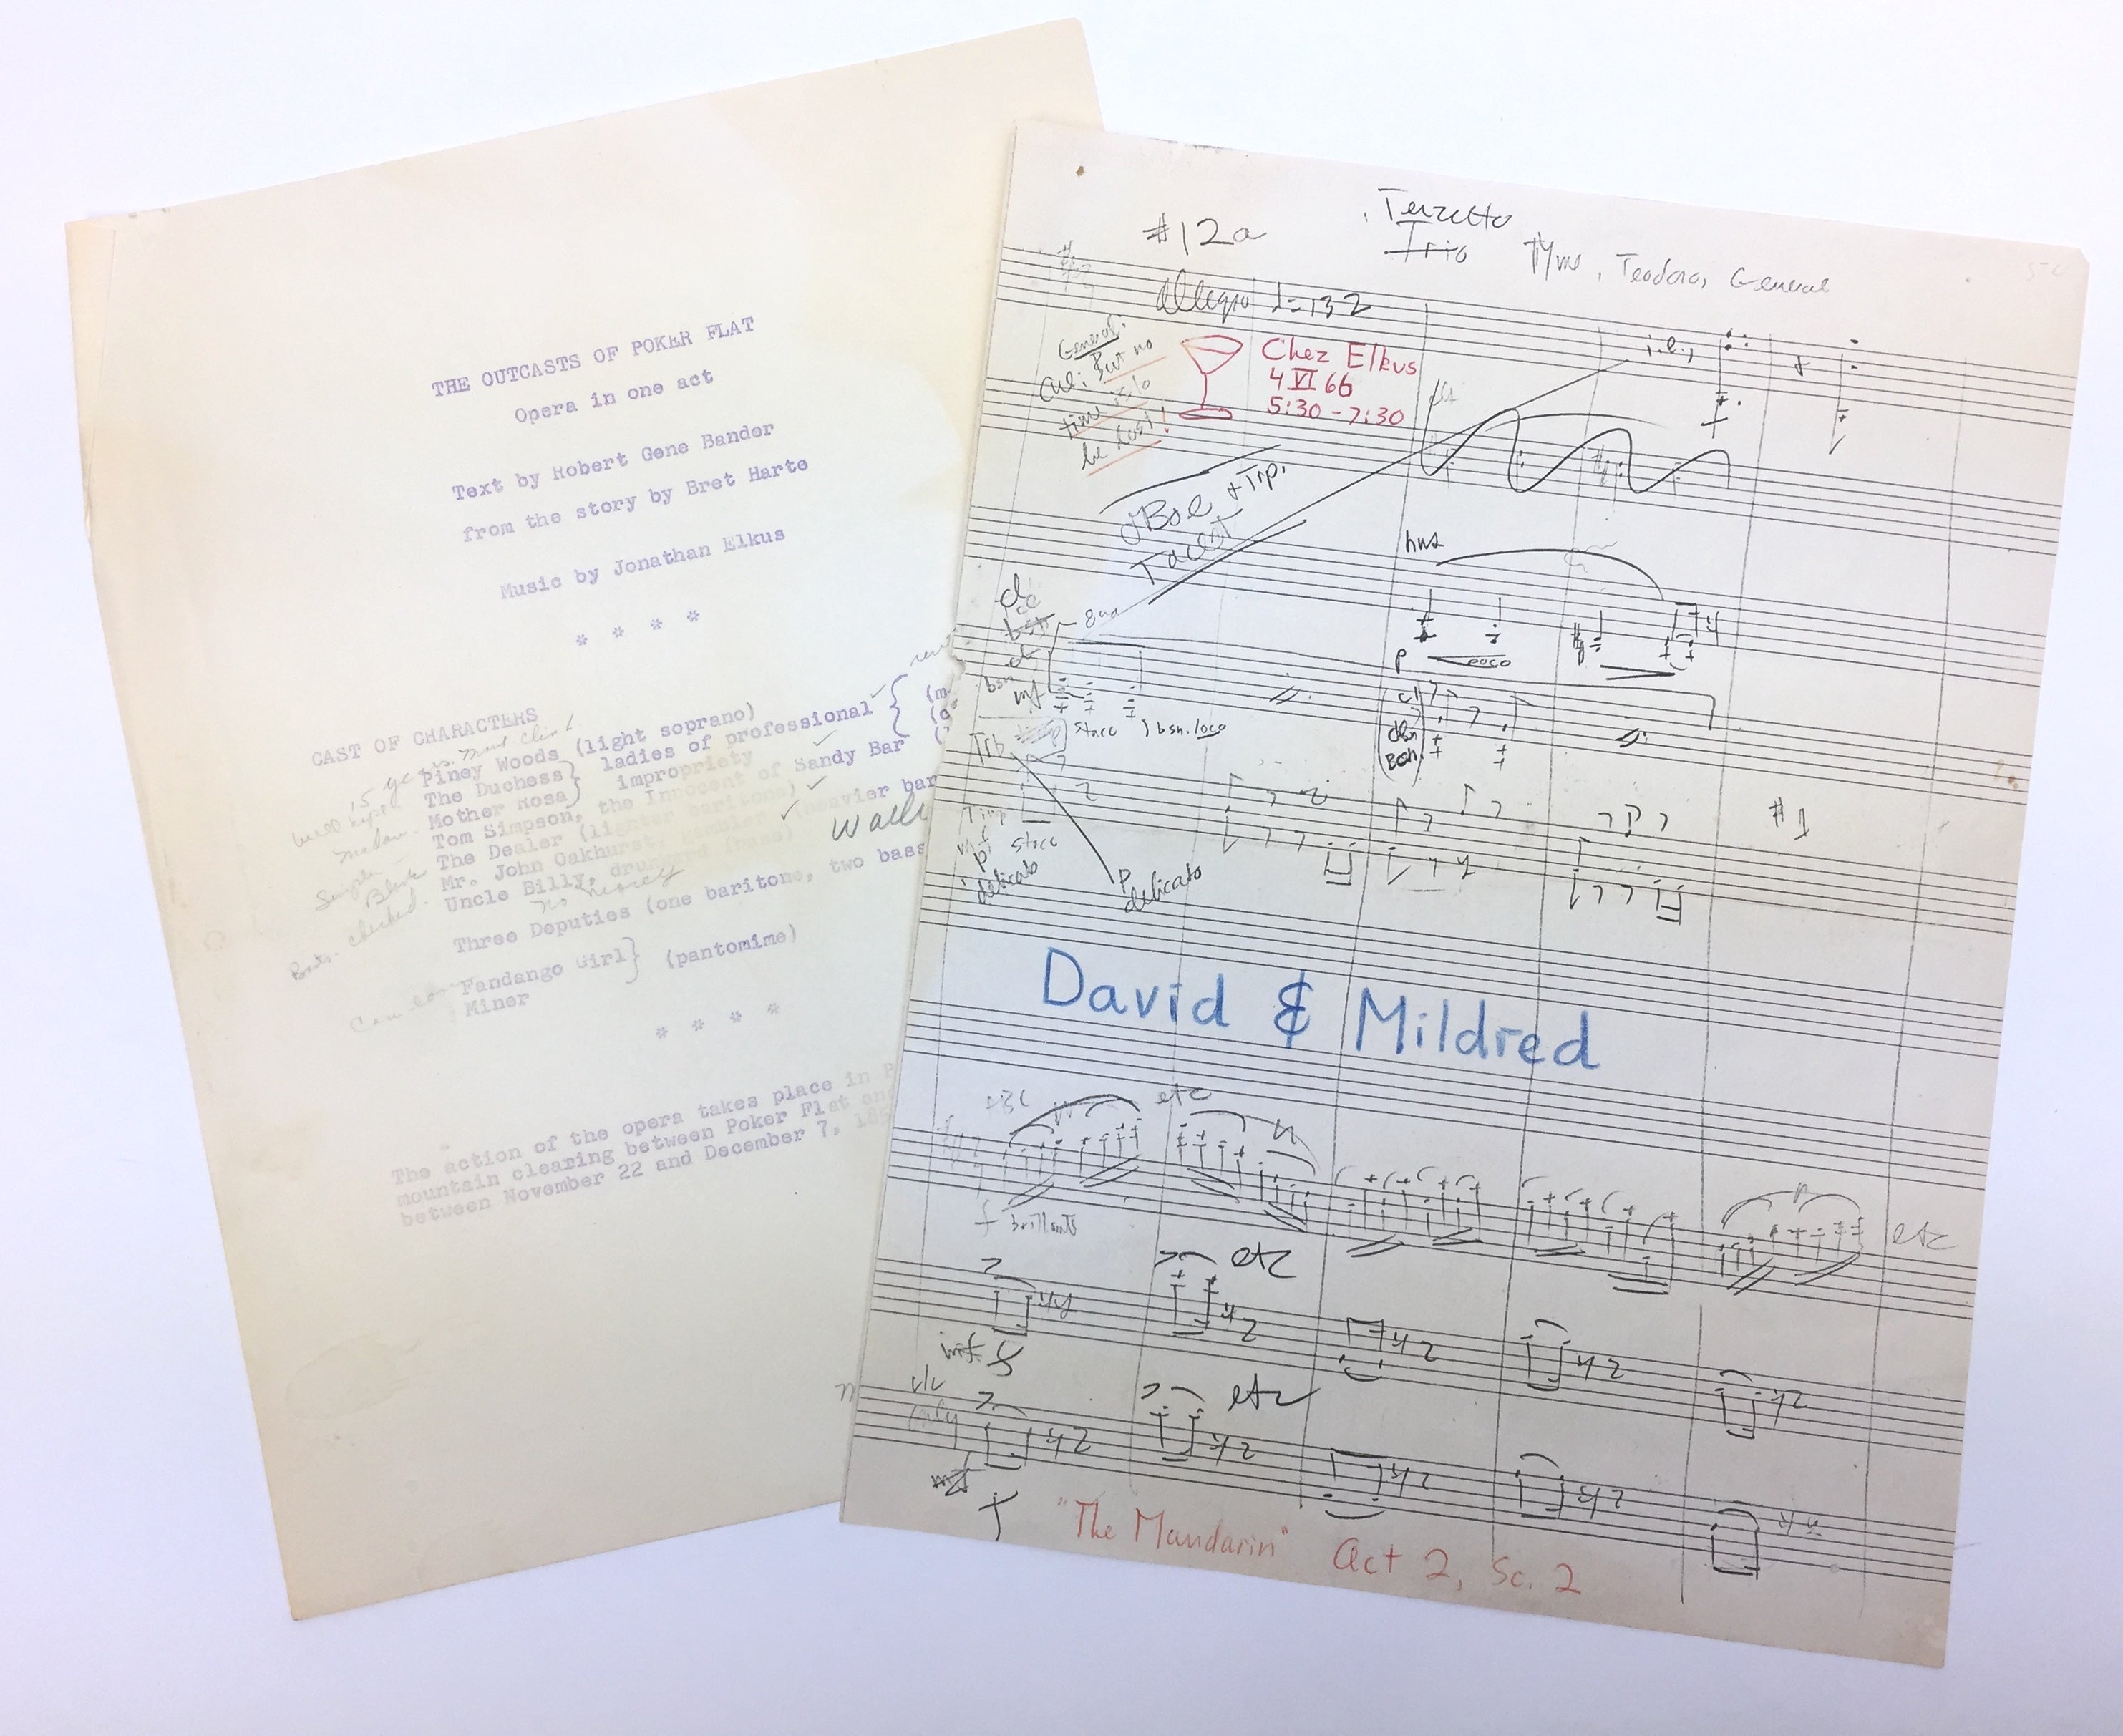 THE OUTCASTS OF POKER FLAT
Opera in one act
Text by Robert Gene Bander
from the story by Bret Harte
Music by Jonathan Elkus
* * * *
CAST OF CHARACTERS
Piney Woods (light soprano)
The Duchess} ladies of professional {
Mother Rosa} impropriety
Tom Simpson, the Innocent of Sandy Bar
The Dealer (lighter baritone)
Mr. John Oakhurst, gambler (heavier bar
Uncle Billy, drunkard (bass)
no mercy
Three Deputies (one baritone, two bass
Fandango Girl} (pantomime)
Miner
* * * *
The action of the opera takes place in P
mountain clearing between Poker Flat and
between November 22 and December 7, 185
#12a
Terzetto
Trio
, Teodoro, General
Allegro ♩=132
General:
But no
time is to
be lost!
Chez Elkus
4 VI 66
5:30 - 7:30
i.e.,
Oboe + Trp.
Tacet
hns
p poco
cl
bsn
8va
mf
stacc
bsn. loco
cl
bsn.
Trb
Timp
mf
stacc
p
delicato
p
delicato
#1
David & Mildred
etc
f brilliant
etc
etc
mf f
vlc
only
etc
mf
f
"The Mandarin" Act 2, Sc. 2